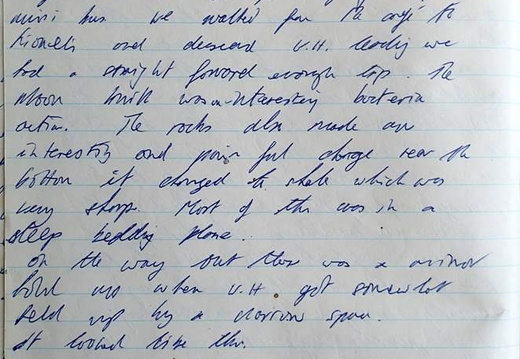 mini bus we walked from the
and descend V.H. leading we
had a straight forward enough trip. The
moon milk was interesting bacteria
action. The rocks also made an
interesting and painful change near the
bottom it changed to shale which was
very sharp. Most of this was in a
steep bedding plane.
on the way out there was a minor
hold up when V.H. got somewhat
held up by a
It looked like this.